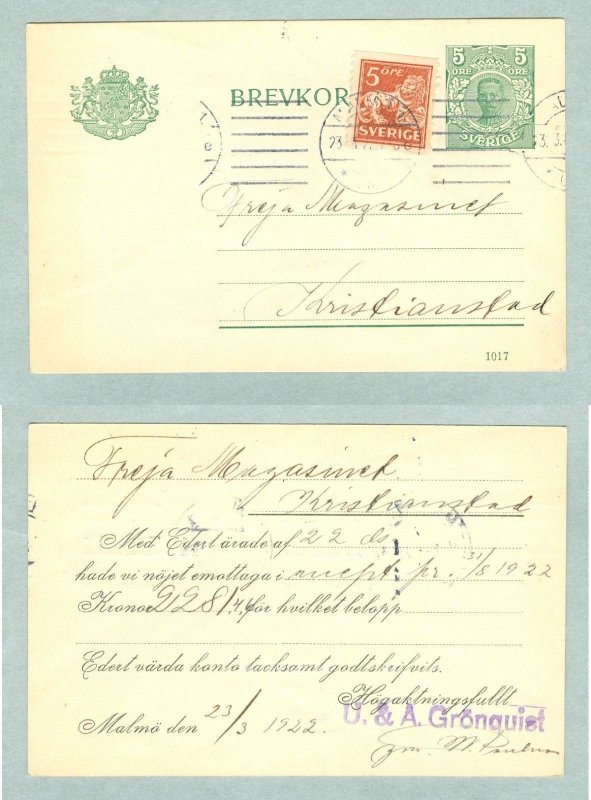 5 ÖRE
SVERIGE
5 5
ÖRE ÖRE
SVERIGE
BREVKOR
Freja Magasinet
Kristianstad
1017
Freja Magasinet
Kristianstad
Med Edert ärade af 22 ds
hade vi nöjet emottaga i accept pr. 31/8 1922
Kronor 228/ för hvilket belopp
Edert värda konto tacksamt godtskrifvits.
Högaktningsfullt
Malmö den 23/3 1922. U. & A. Grönquist